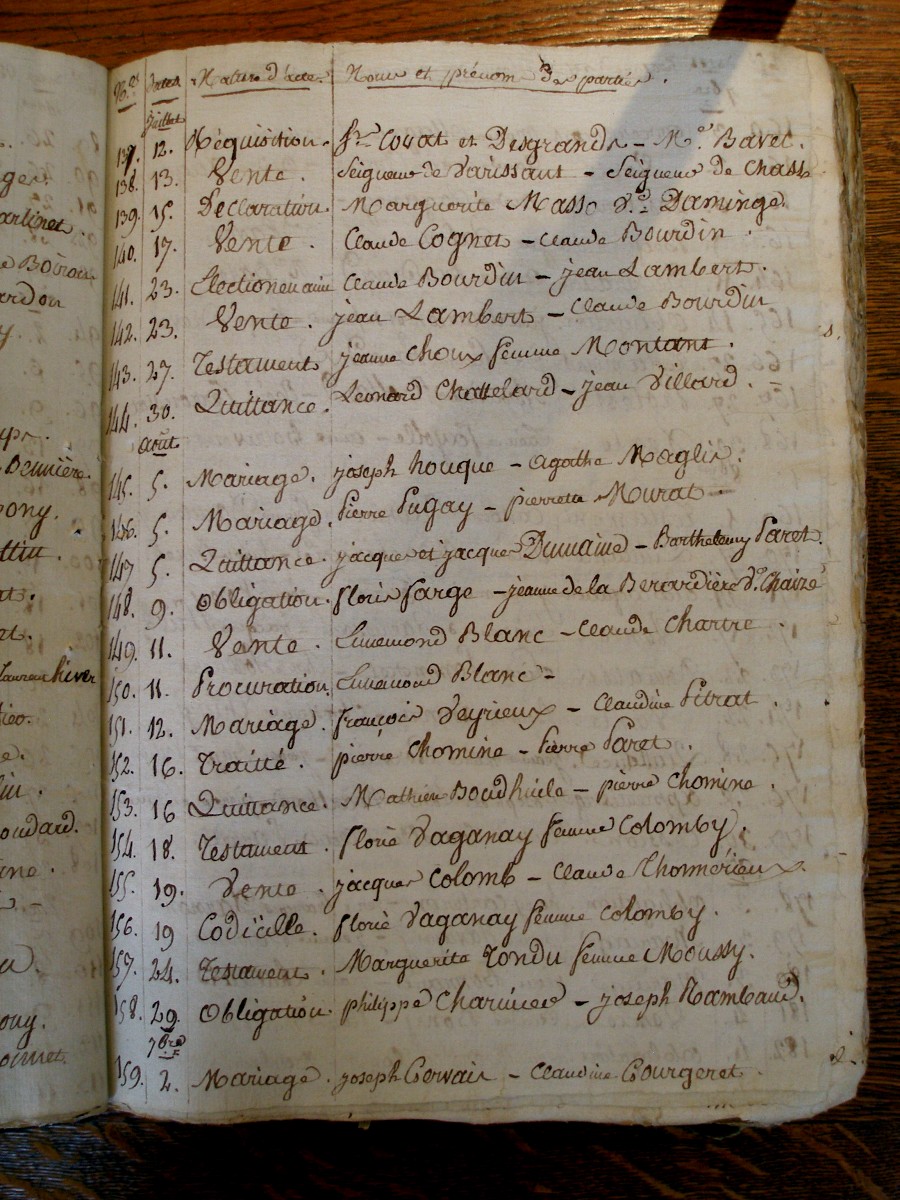 N.os Dates Nature d'acte. Noms et prénoms des parties.
Juillet
137. 12. Réquisition. Srs Couat et Desgrands - Me. Bavet.
138. 13. Vente. Seigneur de Varissant - Seigneur de Chass
139. 15. Déclaration. Marguerite Masso Daminge.
140. 17. Vente. Claude Cognet - Claude Bourdin.
141. 23. Claude Bourdin - jean Lambert.
142. 23. Vente. jean Lambert - Claude Bourdin
143. 27. Testament jeanne Choux femme Montant.
144. 30. Quittance. Leonard Chattelard - jean Villard.
Août
145. 5. Mariage. joseph houque - Agathe Maglin.
146. 5. Mariage. Pierre Pugay - pierrette Murat -
147 5. Quittance. jacques et jacques Dumaine - Barthelemy Paret.
148. 9. Obligation. floris farge - jeanne de la Berardière Chaize
149. 11. Vente. Linnemond Blanc - Claude Chartre.
150. 11. Procuration. Linnemond Blanc -
151. 12. Mariage. françois Veyrieux - Claudine Pitrat.
152. 16. Traitté. pierre Chomine - Pierre Paret.
153. 16 Quittance. Mathieu Boudhuile - pierre Chomine.
154. 18. Testament. florie Vaganay femme Colomby.
155. 19. Vente. jacques Colomb - Claude Thomérieux.
156. 19 Codicille. florie Vaganay femme Colomby.
157. 24. Testament. Marguerite Tondu femme Moussy.
158. 29. Obligation. philippe - joseph Rambaud.
7bre
159. 2. Mariage. joseph Gervais - Claudine Gourgeret.